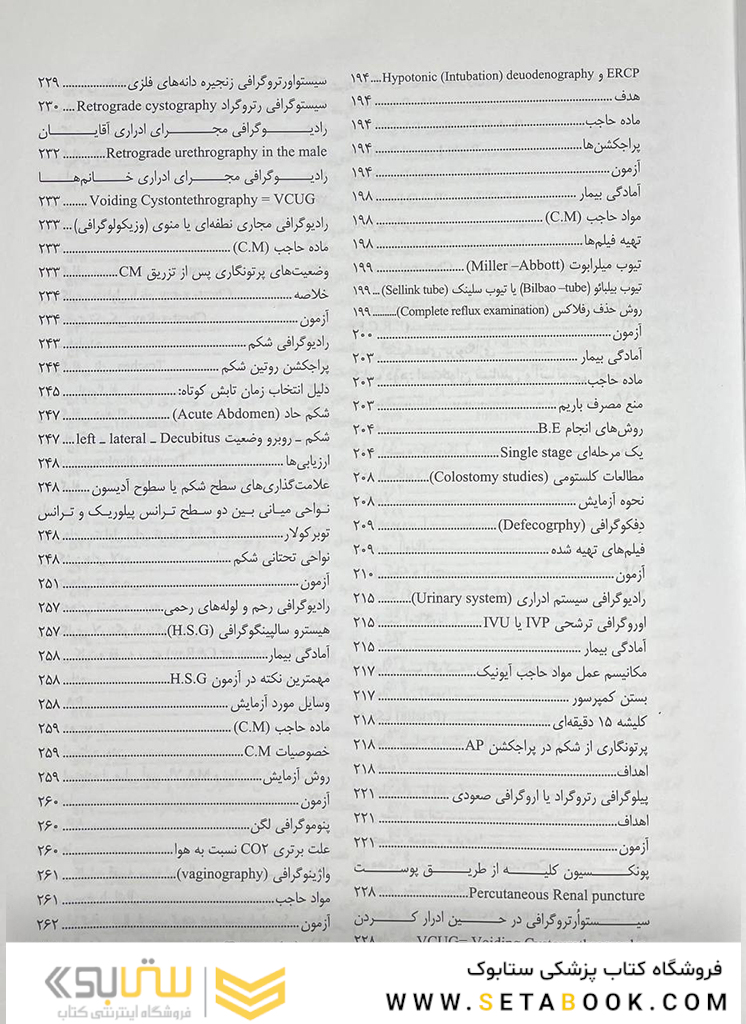 ERCP و Hypotonic (Intubation) deuodenography....۱۹۴
هدف ........ ۱۹۴
ماده حاجب........ ۱۹۴
پراجکشن‌ها........ ۱۹۴
آزمون........ ۱۹۴
آمادگی بیمار ........ ۱۹۸
مواد حاجب (C.M) ........ ۱۹۸
تهیه فیلم‌ها........ ۱۹۸
تیوب میلرابوت (Miller –Abbott) ........ ۱۹۹
تیوب بیلبائو (Bilbao –tube) یا تیوب سلینک (Sellink tube) .. ۱۹۹
روش حذف رفلاکس (Complete reflux examination)........ ۱۹۹
آزمون........ ۲۰۰
آمادگی بیمار ........ ۲۰۳
ماده حاجب........ ۲۰۳
منع مصرف باریم........ ۲۰۳
روش‌های انجام B.E........ ۲۰۴
یک مرحله‌ای Single stage........ ۲۰۴
مطالعات کلستومی (Colostomy studies)........ ۲۰۸
نحوه آزمایش ........ ۲۰۸
دِفکوگرافی (Defecogrphy)........ ۲۰۹
فیلم‌های تهیه شده ........ ۲۰۹
آزمون........ ۲۱۰
رادیوگرافی سیستم ادراری (Urinary system)........ ۲۱۵
اوروگرافی ترشحی IVP یا IVU........ ۲۱۵
آمادگی بیمار ........ ۲۱۵
مکانیسم عمل مواد حاجب آیونیک........ ۲۱۷
بستن کمپرسور ........ ۲۱۷
کلیشه ۱۵ دقیقه‌ای ........ ۲۱۸
پرتونگاری از شکم در پراجکشن AP........ ۲۱۸
اهداف........ ۲۱۸
پیلوگرافی رتروگراد یا اروگرافی صعودی ........ ۲۲۱
اهداف........ ۲۲۱
آزمون........ ۲۲۱
پونکسیون کلیه از طریق پوست
Percutaneous Renal puncture........ ۲۲۸
سیستواُرتروگرافی در حین ادرار کردن
سیستواورتروگرافی زنجیره دانه‌های فلزی........ ۲۲۹
سیستوگرافی رتروگراد Retrograde cystography .... ۲۳۰
رادیوگرافی مجرای ادراری آقایان
Retrograde urethrography in the male........ ۲۳۲
رادیوگرافی مجرای ادراری خانم‌ها
Voiding Cystontethrography = VCUG ........ ۲۳۳
رادیوگرافی مجاری نطفه‌ای یا منوی (وزیکولوگرافی)... ۲۳۳
ماده حاجب (C.M) ........ ۲۳۳
وضعیت‌های پرتونگاری پس از تزریق CM........ ۲۳۳
خلاصه ........ ۲۳۴
آزمون........ ۲۳۴
رادیوگرافی شکم ........ ۲۴۳
پراجکشن روتین شکم ........ ۲۴۴
دلیل انتخاب زمان تابش کوتاه:........ ۲۴۵
شکم حاد (Acute Abdomen) ........ ۲۴۷
شکم ـ روبرو وضعیت left ـ lateral ـ Decubitus.... ۲۴۷
ارزیابی‌ها ........ ۲۴۸
علامت‌گذاری‌های سطح شکم یا سطوح آدیسون ........ ۲۴۸
نواحی میانی بین دو سطح ترانس پیلوریک و ترانس
توبرکولار........ ۲۴۸
نواحی تحتانی شکم ........ ۲۴۸
آزمون........ ۲۵۱
رادیوگرافی رحم و لوله‌های رحمی........ ۲۵۷
هیسترو سالپینگوگرافی (H.S.G)........ ۲۵۷
آمادگی بیمار........ ۲۵۸
مهمترین نکته در آزمون H.S.G........ ۲۵۸
وسایل مورد آزمایش ........ ۲۵۸
ماده حاجب (C.M) ........ ۲۵۹
خصوصیات C.M........ ۲۵۹
روش آزمایش........ ۲۵۹
آزمون........ ۲۶۰
پنوموگرافی لگن........ ۲۶۰
علت برتری CO۲ نسبت به هوا ........ ۲۶۰
واژینوگرافی (vaginography)........ ۲۶۱
مواد حاجب........ ۲۶۱
آزمون........ ۲۶۲
فروشگاه کتاب پزشکی ستابوک
WWW.SETABOOK.COM
ستابوک
فروشگاه اینترنتی کتاب